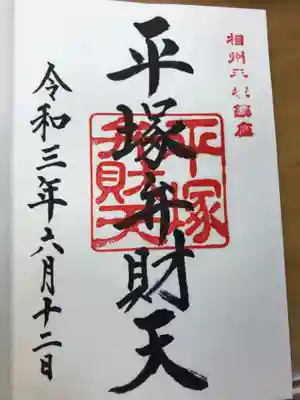 相州六所鎮座
平塚弁財天
平塚弁財天
令和三年六月十二日